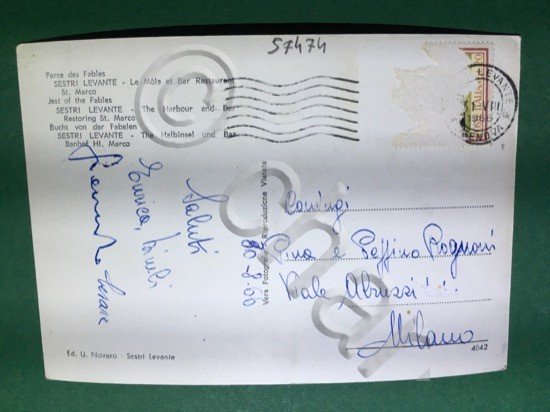 57474
Farce des Fables
SESTRI LEVANTE - Le Môle et Bar Restaurant
St. Marco
Jest of the Fables
SESTRI LEVANTE - The Harbour and Bar
Restoring St. Marco
Bucht von der Fabelen
SESTRI LEVANTE - The Halbinsel und Bar
Banhof Hl. Marco
LEVANTE
GENOVA
Saluti
Enrica,
Cesare
30-8.60
Vera Fotografia - Riproduzione Vietata
Coniugi
Pina e Peppino Rognoni
Viale Abruzzi
Milano
Ed. U. Novero - Sestri Levante
4042
©